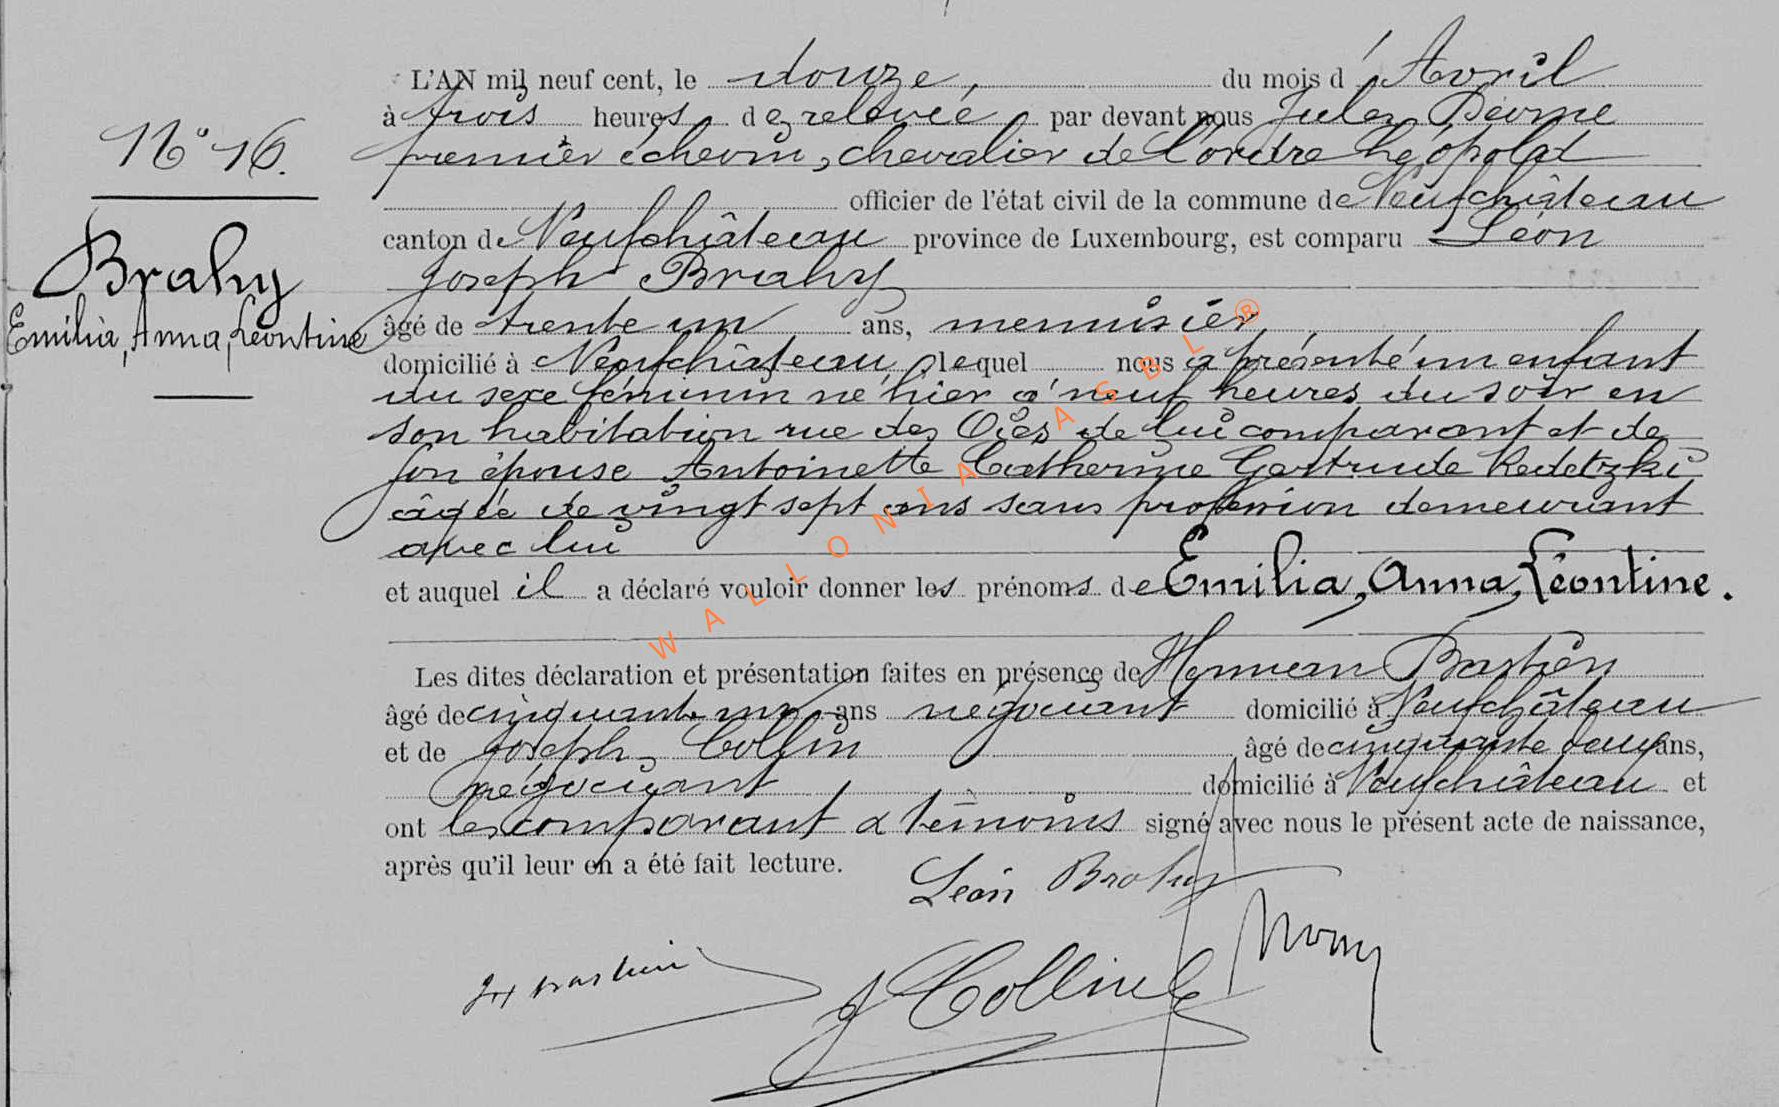 L'AN mil neuf cent, le douze, du mois d'Avril
à trois heures de relevée par devant nous Jules
premier échevin, chevalier de l'ordre Léopold
officier de l'état civil de la commune de Neufchâteau
N° 16.
canton de Neufchâteau province de Luxembourg, est comparu Léon
Joseph Brahy
Brahy
Emilia, Anna, Léontine
âgé de trente un ans, menuisier,
domicilié à Neufchâteau, lequel nous a présenté un enfant
du sexe féminin né hier à neuf heures du soir en
son habitation rue des Oies de lui comparant et de
son épouse Antoinette Catherine Gertrude Redetzki
âgée de vingt sept ans sans profession demeurant
avec lui
et auquel il a déclaré vouloir donner les prénoms de Emilia, Anna, Léontine.
Les dites déclaration et présentation faites en présence de Herman Bastien
âgé de cinquante un ans négociant domicilié à Neufchâteau
et de Joseph Collin âgé de cinquante deux ans,
négociant domicilié à Neufchâteau et
ont les comparant & témoins signé avec nous le présent acte de naissance,
après qu'il leur en a été fait lecture.
Léon Brahy
H Bastien
J Collin
WALLONIA ASBL ®